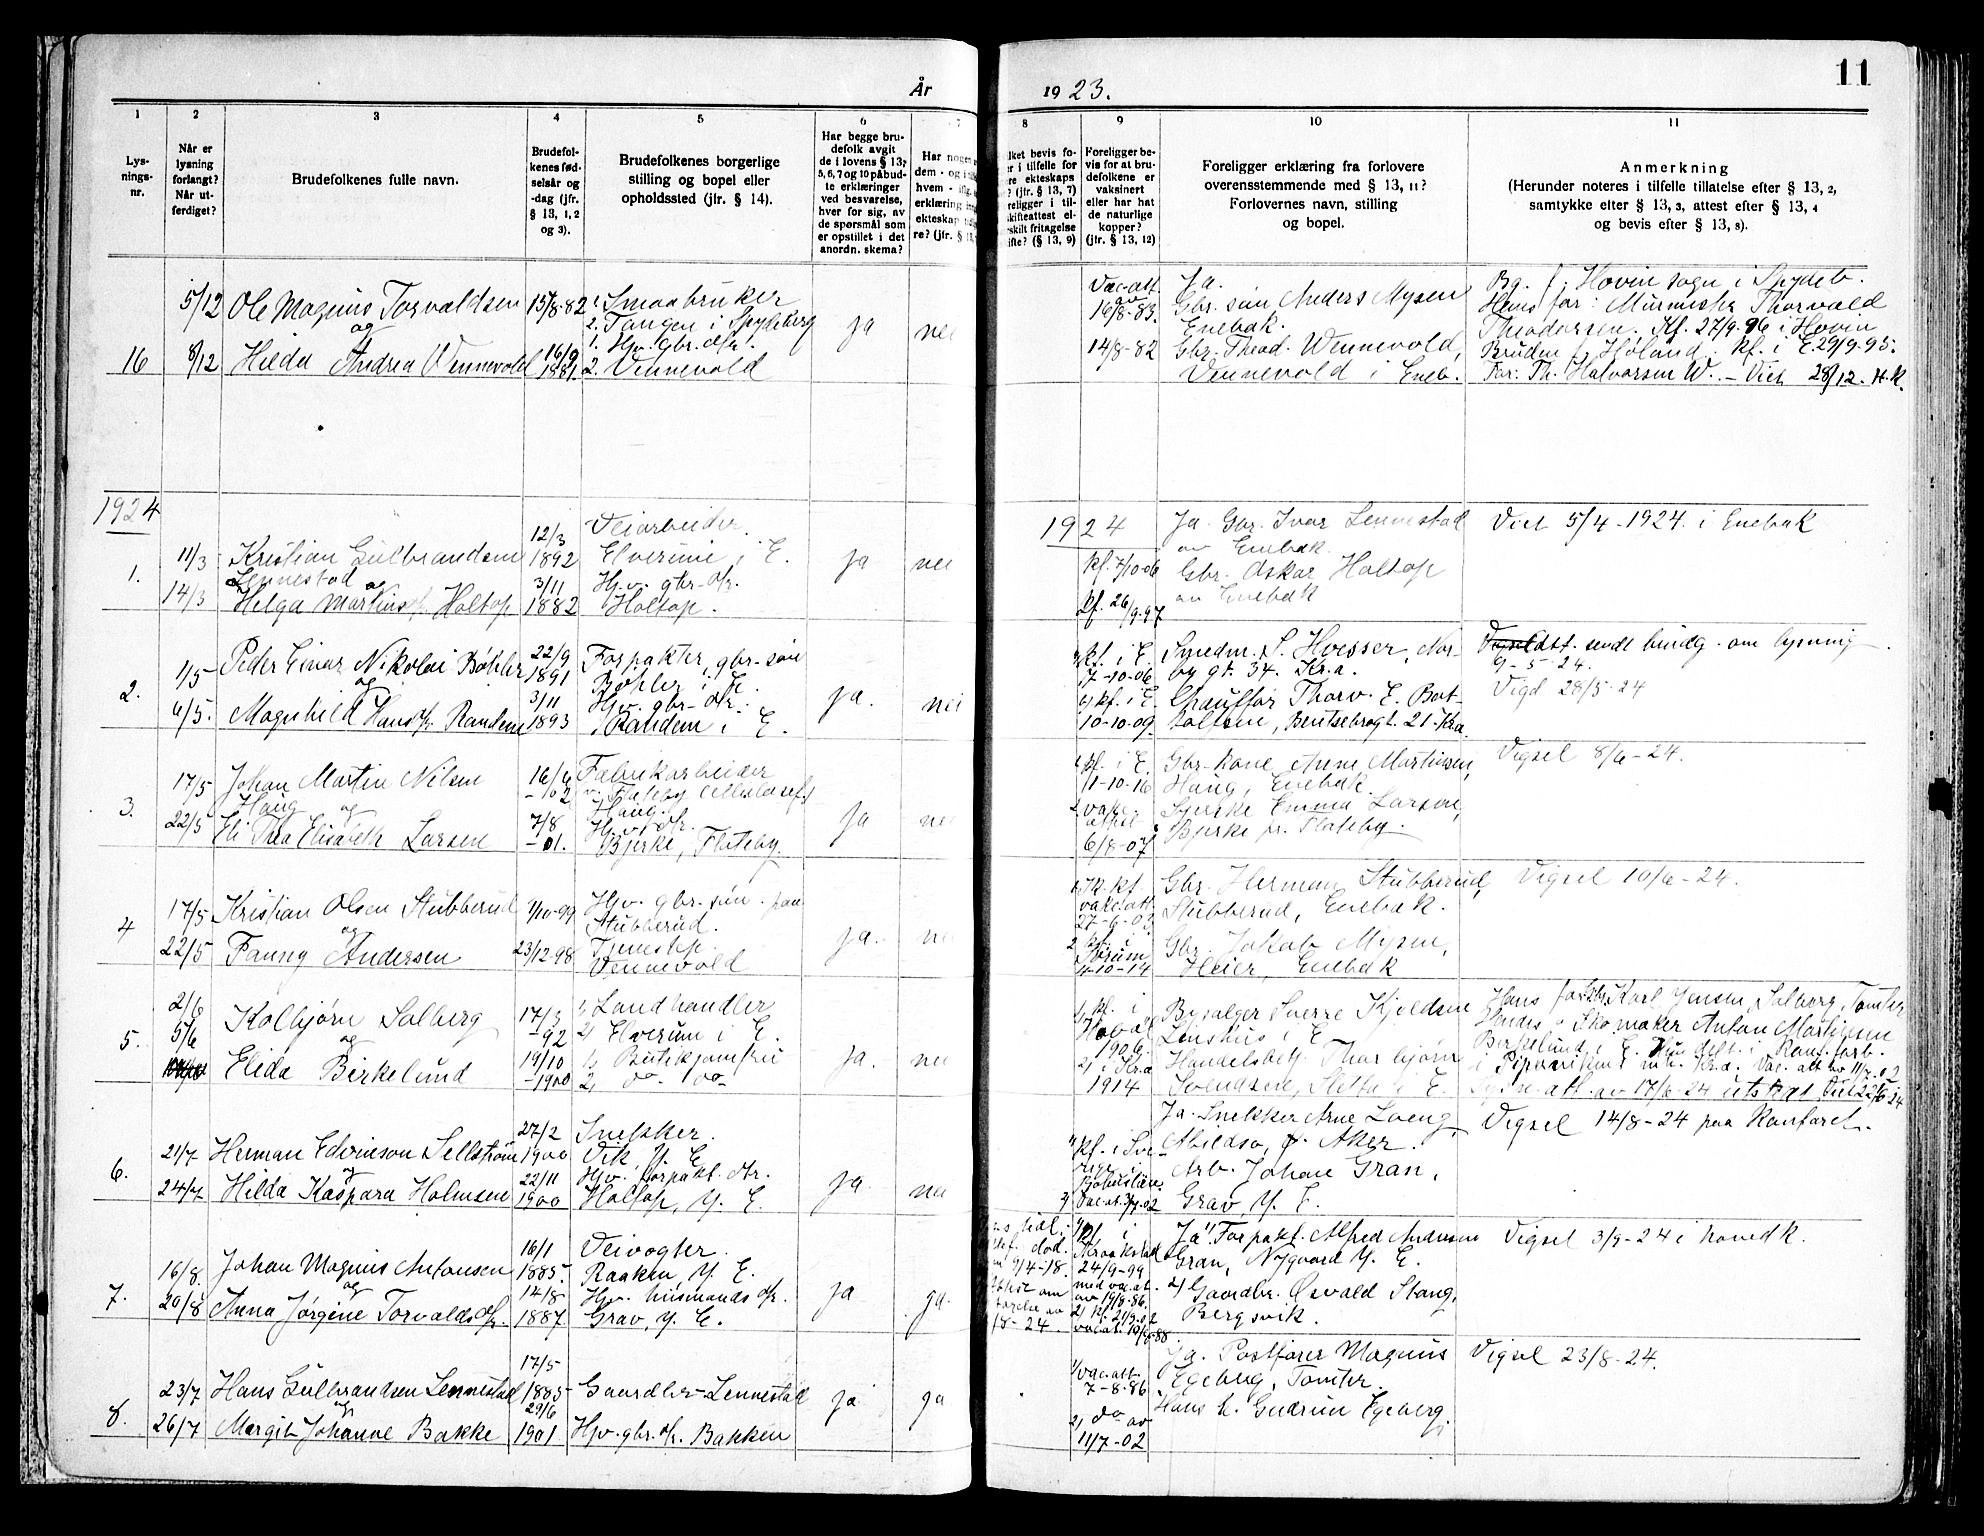 År 1923.
11
1
Lysningsnr.
2
Når er lysning forlangt? Når utferdiget?
3
Brudefolkenes fulle navn.
4
Brudefolkenes fødselsår og -dag (jfr. § 13, 1, 2 og 3).
5
Brudefolkenes borgerlige stilling og bopel eller opholdssted (jfr. § 14).
6
Har begge brudefolk avgit de i lovens § 13, 5, 6, 7 og 10 påbudte erklæringer ved besvarelse, hver for sig, av de spørsmål som er opstillet i det anordn. skema?
7
8
9
Foreligger bevis for at brudefolkene er vaksinert eller har hat de naturlige kopper? (jfr. § 13, 12)
10
Foreligger erklæring fra forlovere overensstemmende med § 13, 11? Forlovernes navn, stilling og bopel.
11
Anmerkning
(Herunder noteres i tilfelle tillatelse efter § 13, 2, samtykke efter § 13, 3, attest efter § 13, 4 og bevis efter § 13, 8).
16
5/12
8/12
Ole Magnus Torvaldsen
og
Hilda Andrea Vennevold
15/8-82
16/9 1881.
1. Smaabruker
2. Tangen i Spydeberg
1. Hv. gbr. dtr.
2. Vennevold
ja
nei
Vac.att.
16/8-83.
14/8-82
Ja.
Gbr. søn Anders Mysen
Enebak.
Gbr. Theod. Wennevold,
Vennevold i Eneb.
Bg. f. Hovin sogn i Spydeb.
Hans far: Murmester Thorvald
Theodorsen. Kf. 27/9-96 i Hovin
Bruden f. Høland. kf. i E. 29/9-95.
Far: Th. Halvorsen W. – Viet 28/12. H.K.
1924
1924
1.
11/3
14/3
Kristian Gulbrandsen
Lennestad og
Helga Martinsdtr. Holtop
12/3
1892
3/11
1882
Veiarbeider.
Elverum i E.
Hj.v. gbr. dtr.
Holtop.
ja
nei
kf. 7/10 06
kf. 26/9-97
Ja. Gbr. Ivar Lennestad
av Enebak.
Gbr. Oskar Holtop
av Enebak
Viet 5/4-1924. i Enebak
2.
1/5
6/5.
Peder Einar Nikolai Bøhler
og
Magnhild Hansdtr. Randem
22/9
1891
3/11
1893
Forpakter, gbr-søn
Bøhler i E.
Hj.v. gbr-dtr.
Randem i E.
ja.
nei
kf. i E.
7-10-06
kf. i E
10-10-09.
Smedm. S. Hvesser, Nor-
by gt. 34. Kr.a.
Chauffør Thorv. E. Bot-
tolfsen, Bentsebrogt. 21. Kr.a.
att. sendt
om lysning
9-5-24.
Vigd 28/5-24
3.
17/5
22/5
Johan Martin Nilsen
Haug og
Eli Thea Elisabeth Larsen
16/6
-02
7/8
-01.
Fabrikarbeider
Haug.
Hj.v. dtr.
Bjerke, Flateby.
ja
nei
kf. i E.
1-10-16
6/8-07
Gbr-kone Anne Martinsen,
Haug, Enebak.
Syerske Emma Larsen,
Bjerke pr. Flateby.
Vigsel 8/6-24.
4
17/5
22/5
Kristian Olsen Stubberud
og
Fanny Andersen
1/10-99
23/12-98
Hj.v. gbr-søn. paa
Stubberud.
Tjenestep.
Vennevold
ja.
nei
vakc.att.
27-6-03
11-10-14
Gbr. Herman Stubberud,
Stubberud, Enebak.
Gbr. Jakob Mysen,
Heier, Enebak
Vigsel 10/6-24.
5.
2/6
5/6
Kolbjørn Solberg
og
Elida Birkelund
17/3
-92
19/10
-1900
1, Landhandler
2, Elverum i E.
1, Butikjomfru
2, do do
ja.
nei
1, kf. i
1906
2, i Kr.a
1914
Bysælger Sverre Kjeldsen
Lenshus i E.
Handelsbetj. Thorbjørn
Svendsen, Sletta i E.
Hans far: Karl Jensen Solberg, Tomter
Hendes " Skomaker Anton Martinsen
Birkelund i E.
Viet 22/6 24
6.
21/7
24/7
Herman Edvinson Sellstrøm
og
Hilda Kaspara Holmsen
27/2
1900
22/11
1900
Snekker.
Vik, Y. E.
Hj.v. forpakt. dtr.
Holtop, Y. E.
ja.
nei
kf. i Sve-
rige i
Ja. Snekker Arne Loeng,
Abildsø, Ø. Aker.
Arb. Johan Gran,
Grav, Y. E.
Vigsel 14/8-24 paa Kontoret.
7.
16/8.
20/8
Johan Magnus Antonsen
og
Anna Jørgine Torvaldsdtr.
16/1
1885.
14/8
1887.
Veivogter.
Raaken, Y. E.
Hj.v. husmandsdtr.
Grav, Y. E.
ja
ja.
død.
9/4-18.
18-24.
1, kf. i
Kraakstad
24/9-99
med vac.at.
av 19/8-86.
2, kf. 21/9-02
Ja 1, Forpakt. Alfred Andersen
Gran, Nygaard Y. E.
2, Gaardbr. Osvald Stang,
Bergsvik.
Vigsel 3/9-24 i hovedk.
8.
23/7
26/7
Hans Gulbrandsen Lennestad
og
Margit Johanne Bakke
17/5
1885
29/6
1901
Gaardbr. Lennestad
Hj.v. gbr. dtr. Bakken
ja
ja
1, vac.att.
7-8-86
2, do av
11/7-02
Ja. Postfører Magnus
Egeberg, Tomter.
Hans h. Gudrun Egeberg,
Vigsel 23/8-24.